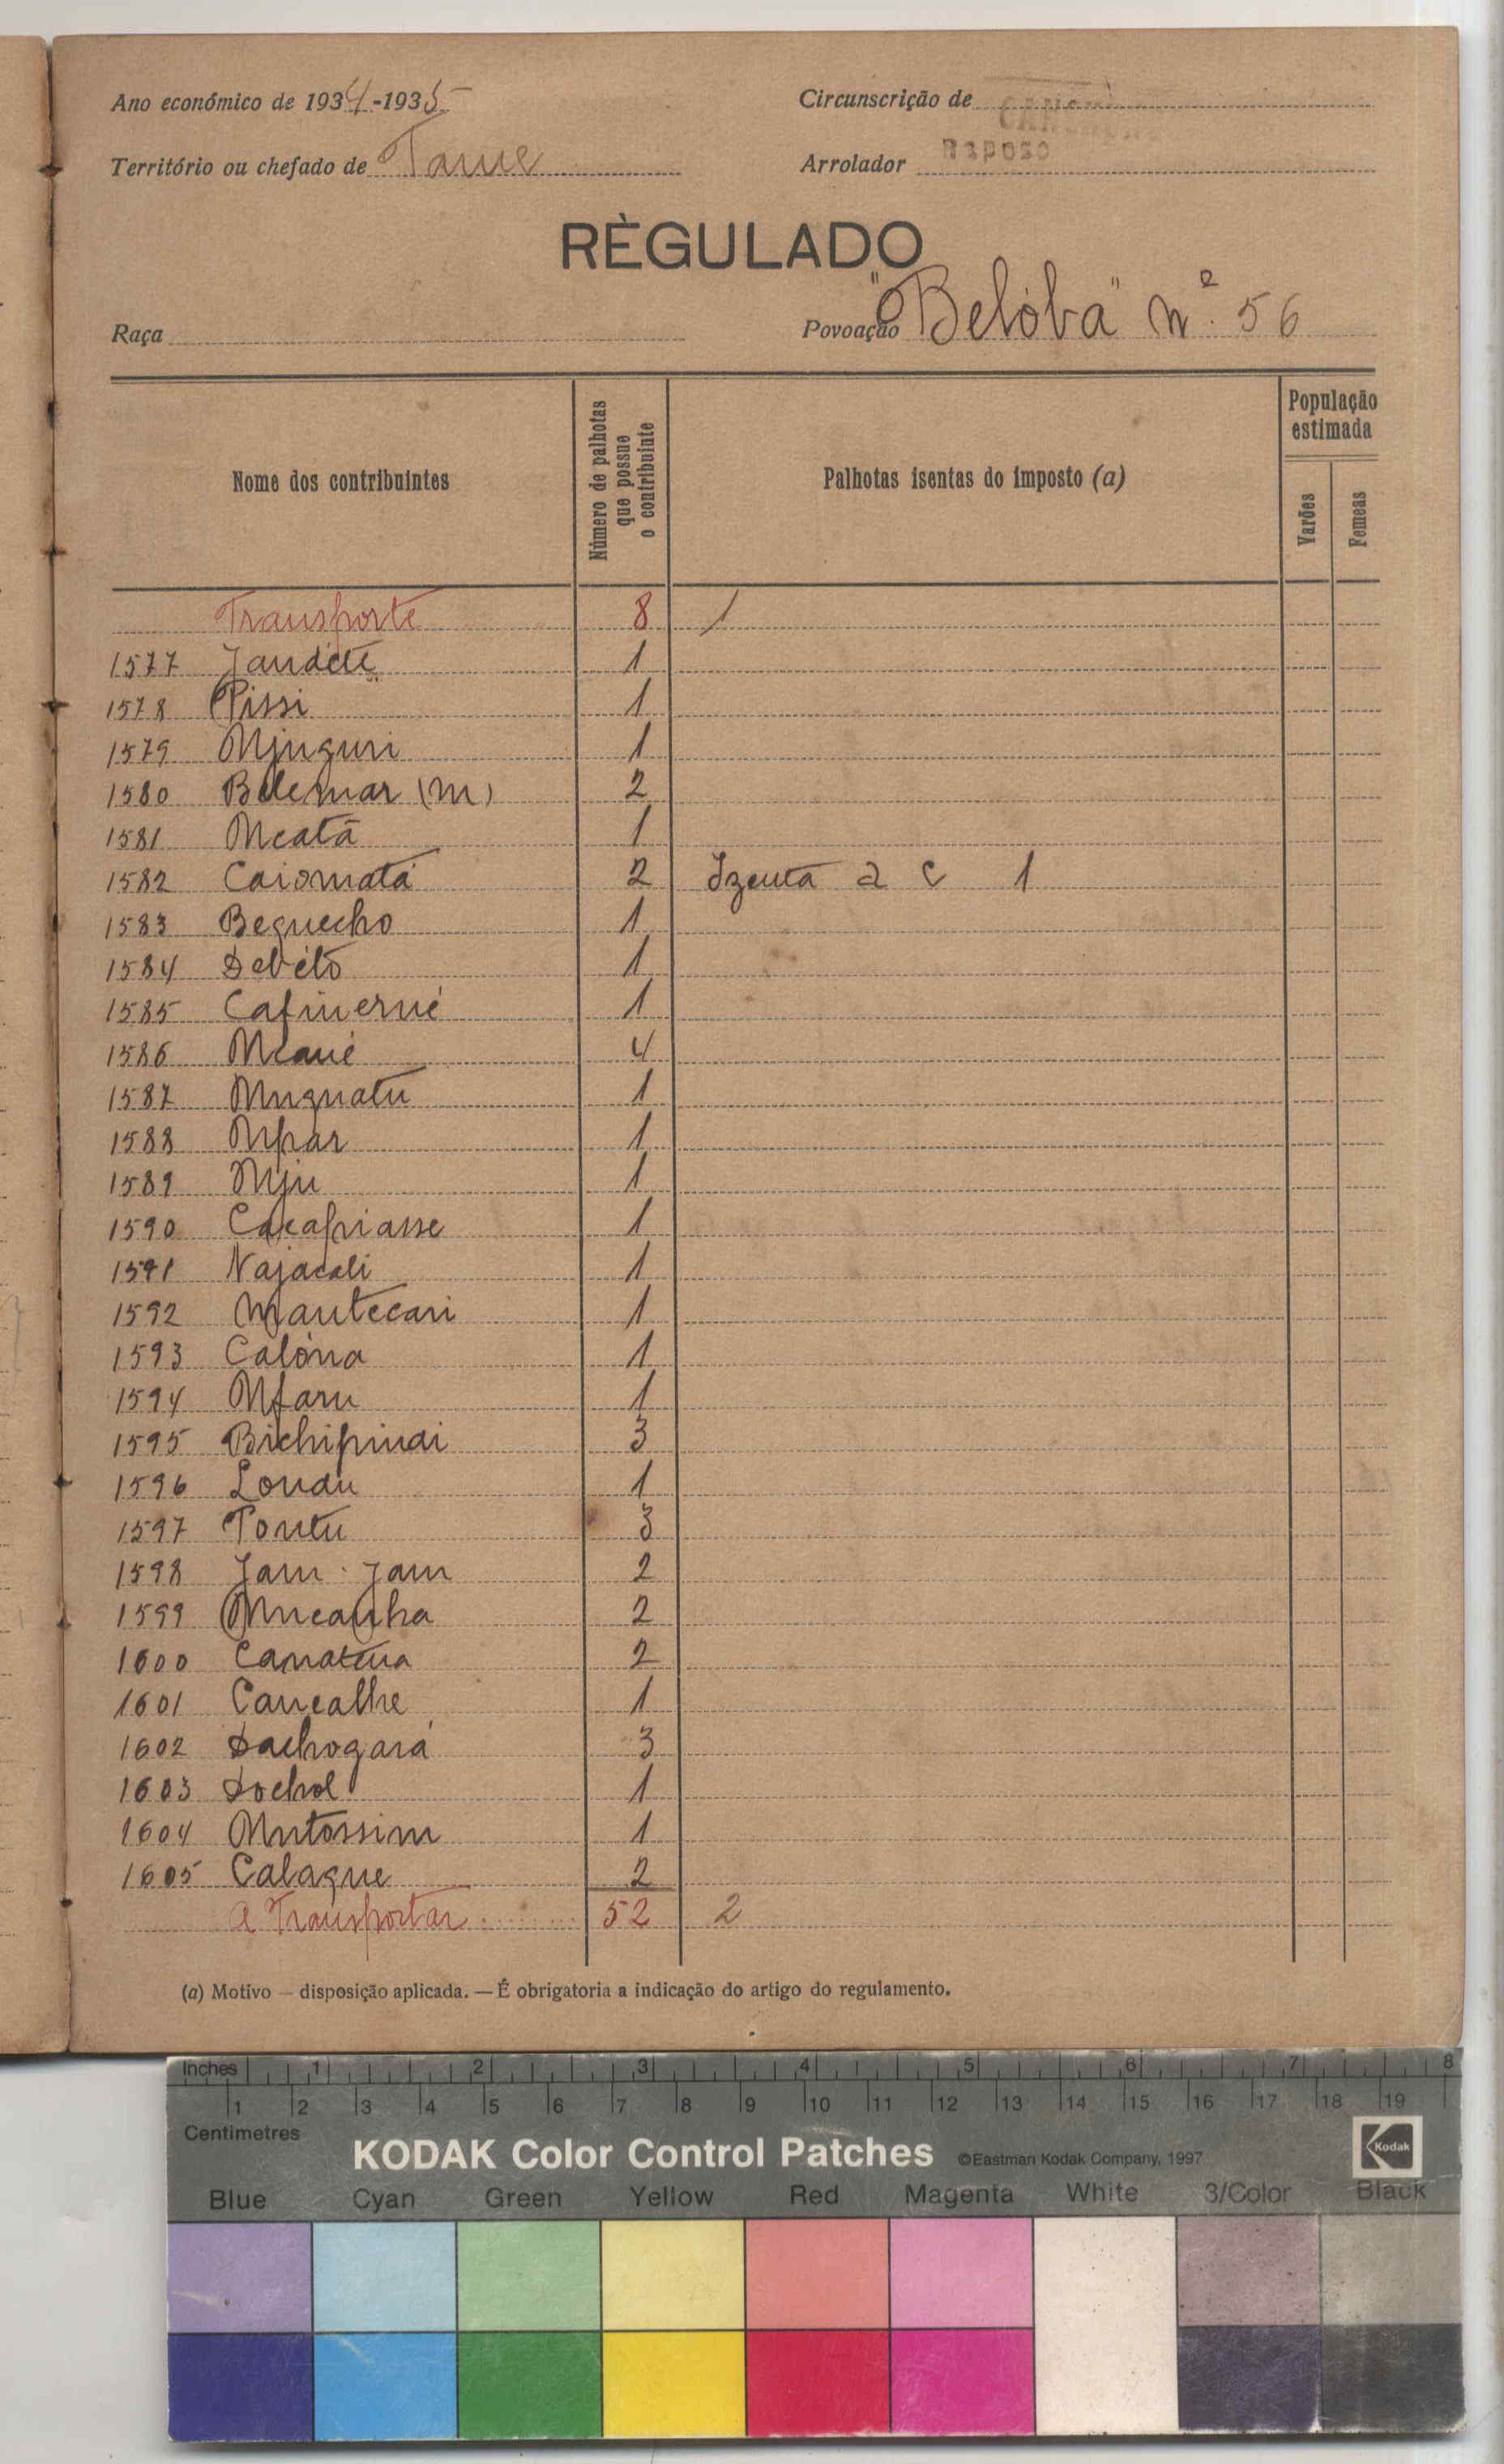 Ano económico de 1934-1935
Circunscrição de
Território ou chefado de Tame
Arrolador Raposo
RÈGULADO
Raça
Povoação "Belóba" nº. 56
Nome dos contribuintes
Número de palhotas que possue o contribuinte
Palhotas isentas do imposto (a)
População estimada
Varões
Femeas
Transporte 8 1
1577 Jandété 1
1578 Pissi 1
1579 Njuguri 1
1580 Belemar (m) 2
1581 Ncatá 1
1582 Caiomatá 2 Izenta a c 1
1583 Beguecho 1
1584 Debéto 1
1585 Cafinerné 1
1586 Ncaué 4
1587 Nuguatu 1
1588 Npar 1
1589 Nju 1
1590 Cacapiasse 1
1591 Najacali 1
1592 Mantecari 1
1593 Calóna 1
1594 Nfaru 1
1595 Bichipinai 3
1596 Londu 1
1597 Tontu 3
1598 Jam-Jam 2
1599 Mucanha 2
1600 Canatua 2
1601 Cancalhe 1
1602 Dachogará 3
1603 Dochol 1
1604 Mutossim 1
1605 Calaque 2
A Transportar 52 2
(a) Motivo — disposição aplicada. — É obrigatoria a indicação do artigo do regulamento.
Inches 1 2 3 4 5 6 7 8
1 2 3 4 5 6 7 8 9 10 11 12 13 14 15 16 17 18 19
Centimetres
KODAK Color Control Patches ©Eastman Kodak Company, 1997 Kodak
Blue Cyan Green Yellow Red Magenta White 3/Color Black